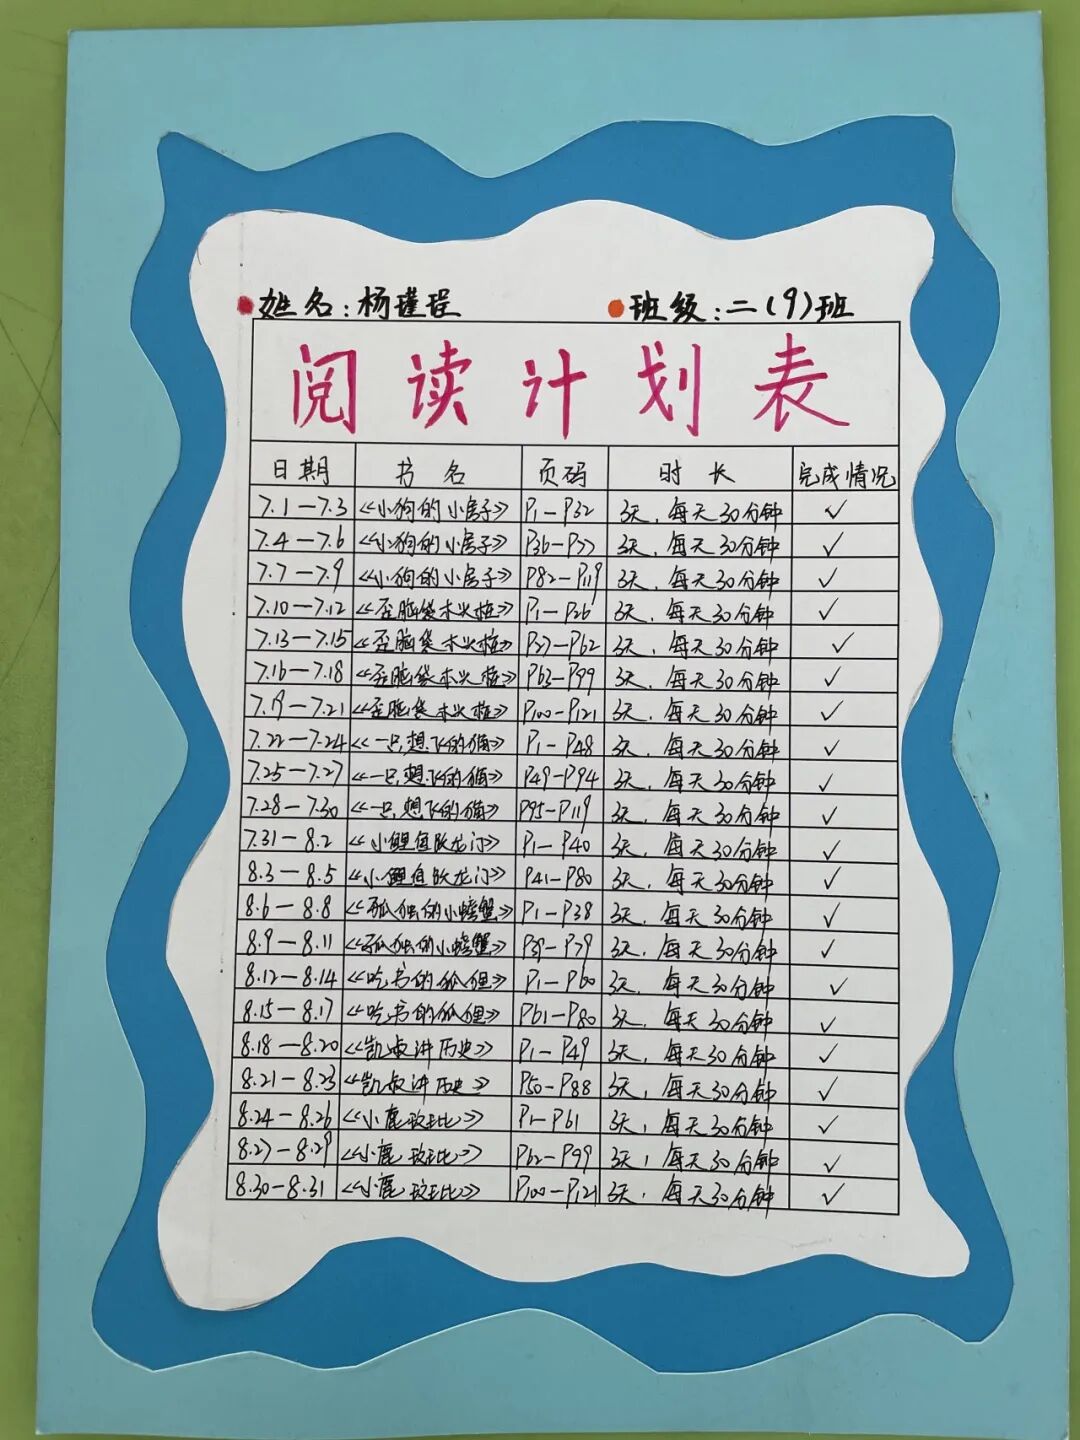 姓名:杨瑾珵 班级:二(9)班
阅读计划表
日期 书名 页码 时长 完成情况
7.1—7.3 《小狗的小房子》 P1—P32 3天,每天30分钟 ✓
7.4—7.6 《小狗的小房子》 P36—P77 3天,每天30分钟 ✓
7.7—7.9 《小狗的小房子》 P82—P119 3天,每天30分钟 ✓
7.10—7.12 《歪脑袋木头桩》 P1—P26 3天,每天30分钟 ✓
7.13—7.15 《歪脑袋木头桩》 P27—P62 3天,每天30分钟 ✓
7.16—7.18 《歪脑袋木头桩》 P63—P99 3天,每天30分钟 ✓
7.19—7.21 《歪脑袋木头桩》 P100—P121 3天,每天30分钟 ✓
7.22—7.24 《一只想飞的猫》 P1—P48 3天,每天30分钟 ✓
7.25—7.27 《一只想飞的猫》 P49—P94 3天,每天30分钟 ✓
7.28—7.30 《一只想飞的猫》 P95—P119 3天,每天30分钟 ✓
7.31—8.2 《小鲤鱼跃龙门》 P1—P40 3天,每天30分钟 ✓
8.3—8.5 《小鲤鱼跃龙门》 P41—P80 3天,每天30分钟 ✓
8.6—8.8 《孤独的小螃蟹》 P1—P38 3天,每天30分钟 ✓
8.9—8.11 《孤独的小螃蟹》 P39—P79 3天,每天30分钟 ✓
8.12—8.14 《吃书的狐狸》 P1—P60 3天,每天30分钟 ✓
8.15—8.17 《吃书的狐狸》 P61—P80 3天,每天30分钟 ✓
8.18—8.20 《凯叔讲历史》 P1—P49 3天,每天30分钟 ✓
8.21—8.23 《凯叔讲历史》 P50—P88 3天,每天30分钟 ✓
8.24—8.26 《小鹿斑比》 P2—P61 3天,每天30分钟 ✓
8.27—8.29 《小鹿斑比》 P62—P99 3天,每天30分钟 ✓
8.30—8.31 《小鹿斑比》 P100—P121 3天,每天30分钟 ✓